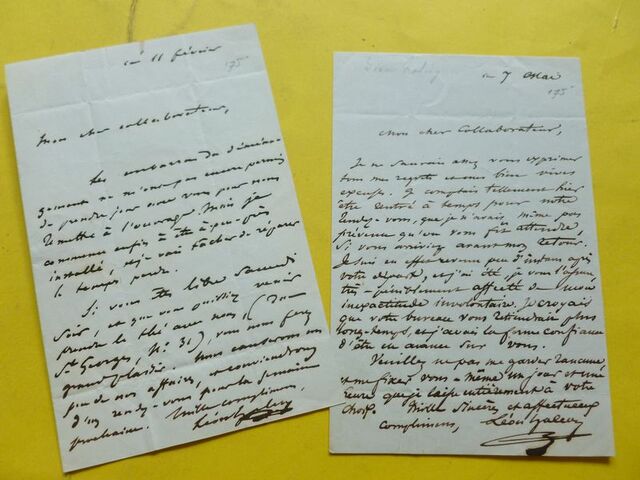 ce 11 février
175
Mon cher collaborateur,
Les embarras du déména-
gement ne m'ont pas encore permis
de prendre jour avec vous pour nous
remettre à l'ouvrage. Mais je
commence enfin à être à peu près
installé, et je vais tâcher de réparer
le temps perdu.
Si vous êtes libre samedi
soir, et que vous puissiez venir
prendre le thé avec nous (Rue
St Georges, No 31), vous nous ferez
grand plaisir. Nous causerons un
peu de nos affaires, et conviendrons
d'un rendez-vous pour la semaine
prochaine. Mille complimens,
Léon
ce 7 Mai
175
Mon cher Collaborateur,
Je ne saurais assez vous exprimer
tous mes regrets et mes bien vives
excuses. Je comptais tellement hier
être rentré à temps pour notre
rendez-vous, que je n'avais même pas
prévenu qu'on vous fît attendre
si vous arriviez avant mon retour.
Je suis en effet revenu peu d'instans après
votre départ, et j'ai été, je vous l'assure,
très-péniblement affecté de mon
inexactitude involontaire. Je croyais
que votre bureau vous retiendrait plus
longtemps, et j'avais la ferme confiance
d'être en avance sur vous.
Veuillez ne pas me garder rancune
et me fixer vous-même un jour et une
heure que je laisse entièrement à votre
choix. Mille sincères et affectueux
complimens, Léon